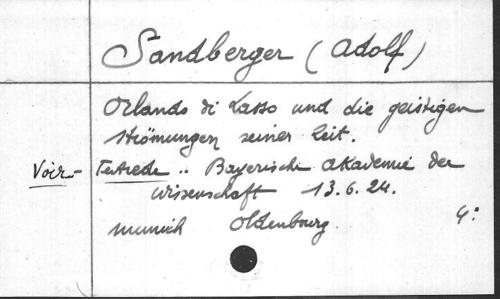 Sandberger (Adolf)
Orlando di Lasso und die geistigen
Strömungen seiner Zeit.
Voir- Festrede .. Bayerische Akademie der
Wissenschaft 13.6.24.
Munich Oldenbourg 4: